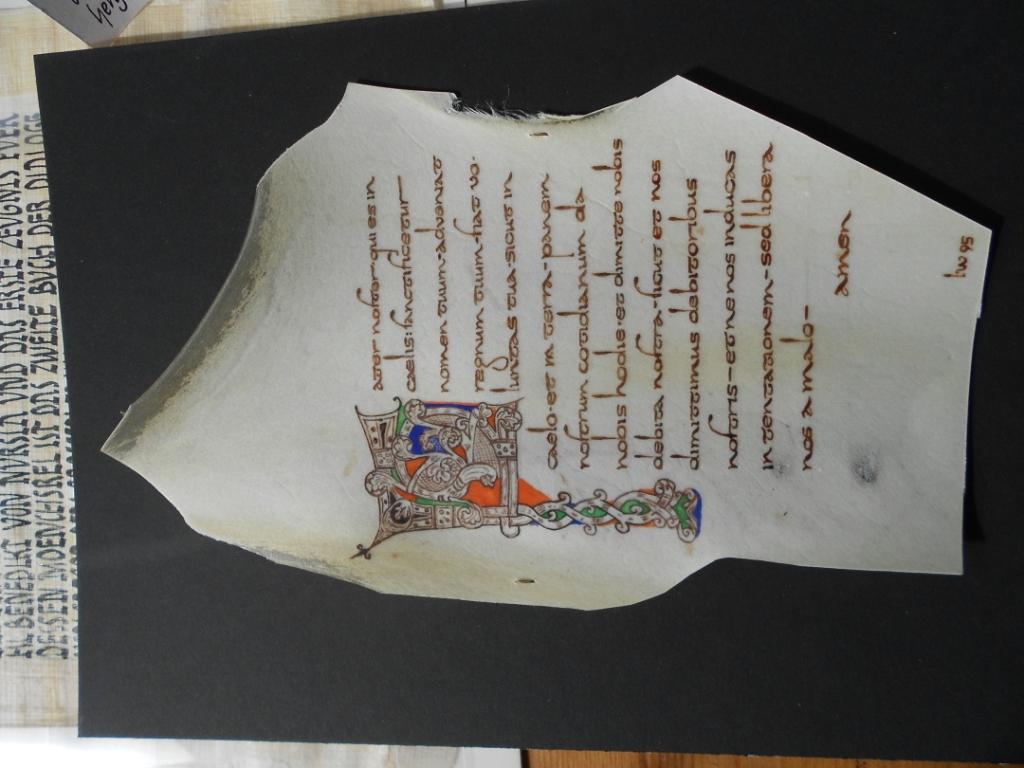 HL. BENEDIKT VON NURSIA UND DAS ERSTE ZEUGNIS ÜBER
DESSEN MOENCHSREGEL IST DAS ZWEITE BUCH DER DIALOGE
Pater noster qui es in
caelis: sanctificetur
nomen tuum·adveniat
regnum tuum·fiat vo·
luntas tua sicut in
caelo·et in terra·panem
nostrum cotidianum da
nobis hodie·et dimitte nobis
debita nostra·sicut et nos
dimittimus debitoribus
nostris–et ne nos inducas
in tentationem–sed libera
nos a malo–
amen
hw 95